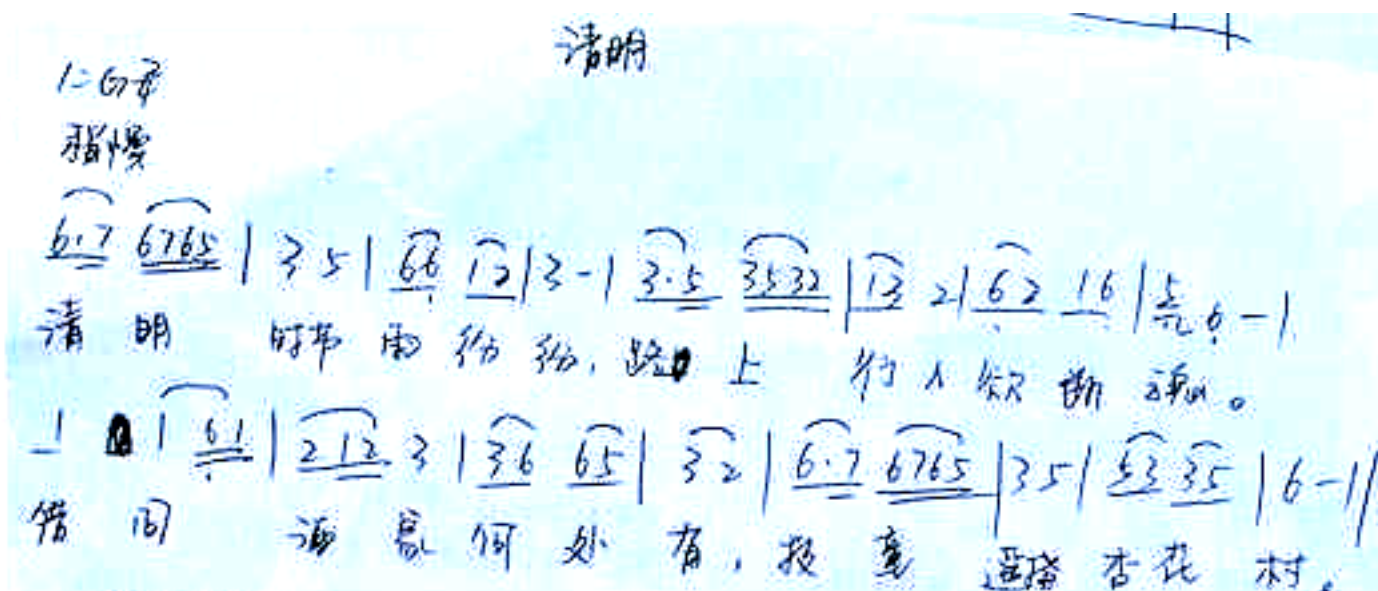 清明
1=G
稍慢
6·7 6765 | 3 5 | 66 12 | 3 - | 3·5 3532 | 13 2 | 62 16 | 5 6 - |
清 明 时节 雨 纷 纷, 路 上 行 人 欲 断 魂。
1 1 61 | 212 3 | 36 65 | 32 | 6·7 6765 | 35 | 53 35 | 6 - ||
借 问 酒 家 何 处 有, 牧 童 遥指 杏 花 村。